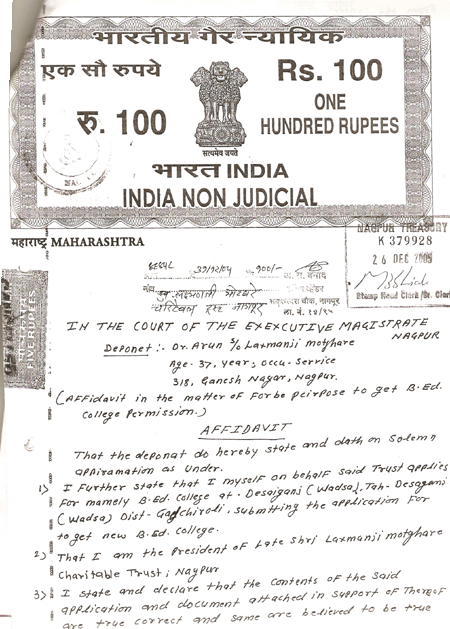 भारतीय गैर न्यायिक
एक सौ रुपये
Rs. 100
रु. 100
ONE
HUNDRED RUPEES
सत्यमेव जयते
भारत INDIA
INDIA NON JUDICIAL
महाराष्ट्र MAHARASHTRA
NAGPUR TREASURY
K 379928
26 DEC 2005
Stamp Head Clerk / Sr. Clerk
FIVE RUPEES
IN THE COURT OF THE EXEXCUTIVE MAGISTRATE
NAGPUR
Deponet :- Dr. Arun S/o Laxmanji motghare
Age - 37, year, occu - Service
318, Ganesh Nagar, Nagpur.
(Affidavit in the matter of Forbe Pcirpose to get B.Ed.
College Permission.)
AFFIDAVIT
That the deponat do hereby state and dath on Solemn
appiramation as Under.
1) I Further state that I myself on behalf Said Trust applies
For mamely B.Ed. College at - Desaiganj (Wadsa), Tah - Desaganj
(Wadsa) Dist - Gadchiroli, submtting the application For
to get new B.Ed. College.
2) That I am the President of Late Shri Laxmanji motghare
Charitable Trust; Naypur
3) I state and declare that the Contents of the Said
application and document attached in support of Thereof
are true correct and same are believed to be true